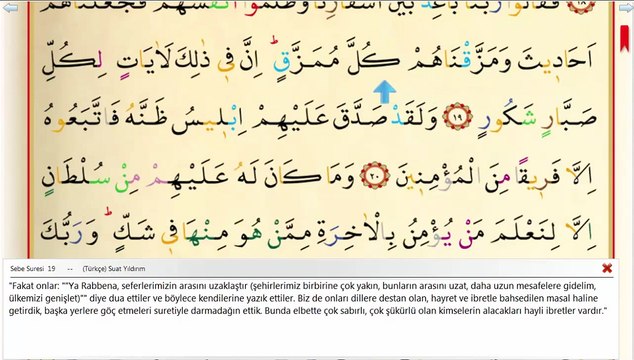 فَقَالُوا رَبَّنَا بَاعِدْ بَيْنَ اَسْفَارِنَا وَظَلَمُوا اَنْفُسَهُمْ فَجَعَلْنَاهُمْ
اَحَادِيثَ وَمَزَّقْنَاهُمْ كُلَّ مُمَزَّقٍ اِنَّ فِي ذٰلِكَ لَاٰيَاتٍ لِكُلِّ
صَبَّارٍ شَكُورٍ ﴿١٩﴾ وَلَقَدْ صَدَّقَ عَلَيْهِمْ اِبْلِيسُ ظَنَّهُ فَاتَّبَعُوهُ
اِلَّا فَرِيقًا مِنَ الْمُؤْمِنِينَ ﴿٢٠﴾ وَمَا كَانَ لَهُ عَلَيْهِمْ مِنْ سُلْطَانٍ
اِلَّا لِنَعْلَمَ مَنْ يُؤْمِنُ بِالْاٰخِرَةِ مِمَّنْ هُوَ مِنْهَا فِي شَكٍّ وَرَبُّكَ
Sebe Suresi 19 -- (Türkçe) Suat Yıldırım
"Fakat onlar: ""Ya Rabbena, seferlerimizin arasını uzaklaştır (şehirlerimiz birbirine çok yakın, bunların arasını uzat, daha uzun mesafelere gidelim,
ülkemizi genişlet)"" diye dua ettiler ve böylece kendilerine yazık ettiler. Biz de onları dillere destan olan, hayret ve ibretle bahsedilen masal haline
getirdik, başka yerlere göç etmeleri suretiyle darmadağın ettik. Bunda elbette çok sabırlı, çok şükürlü olan kimselerin alacakları hayli ibretler vardır."